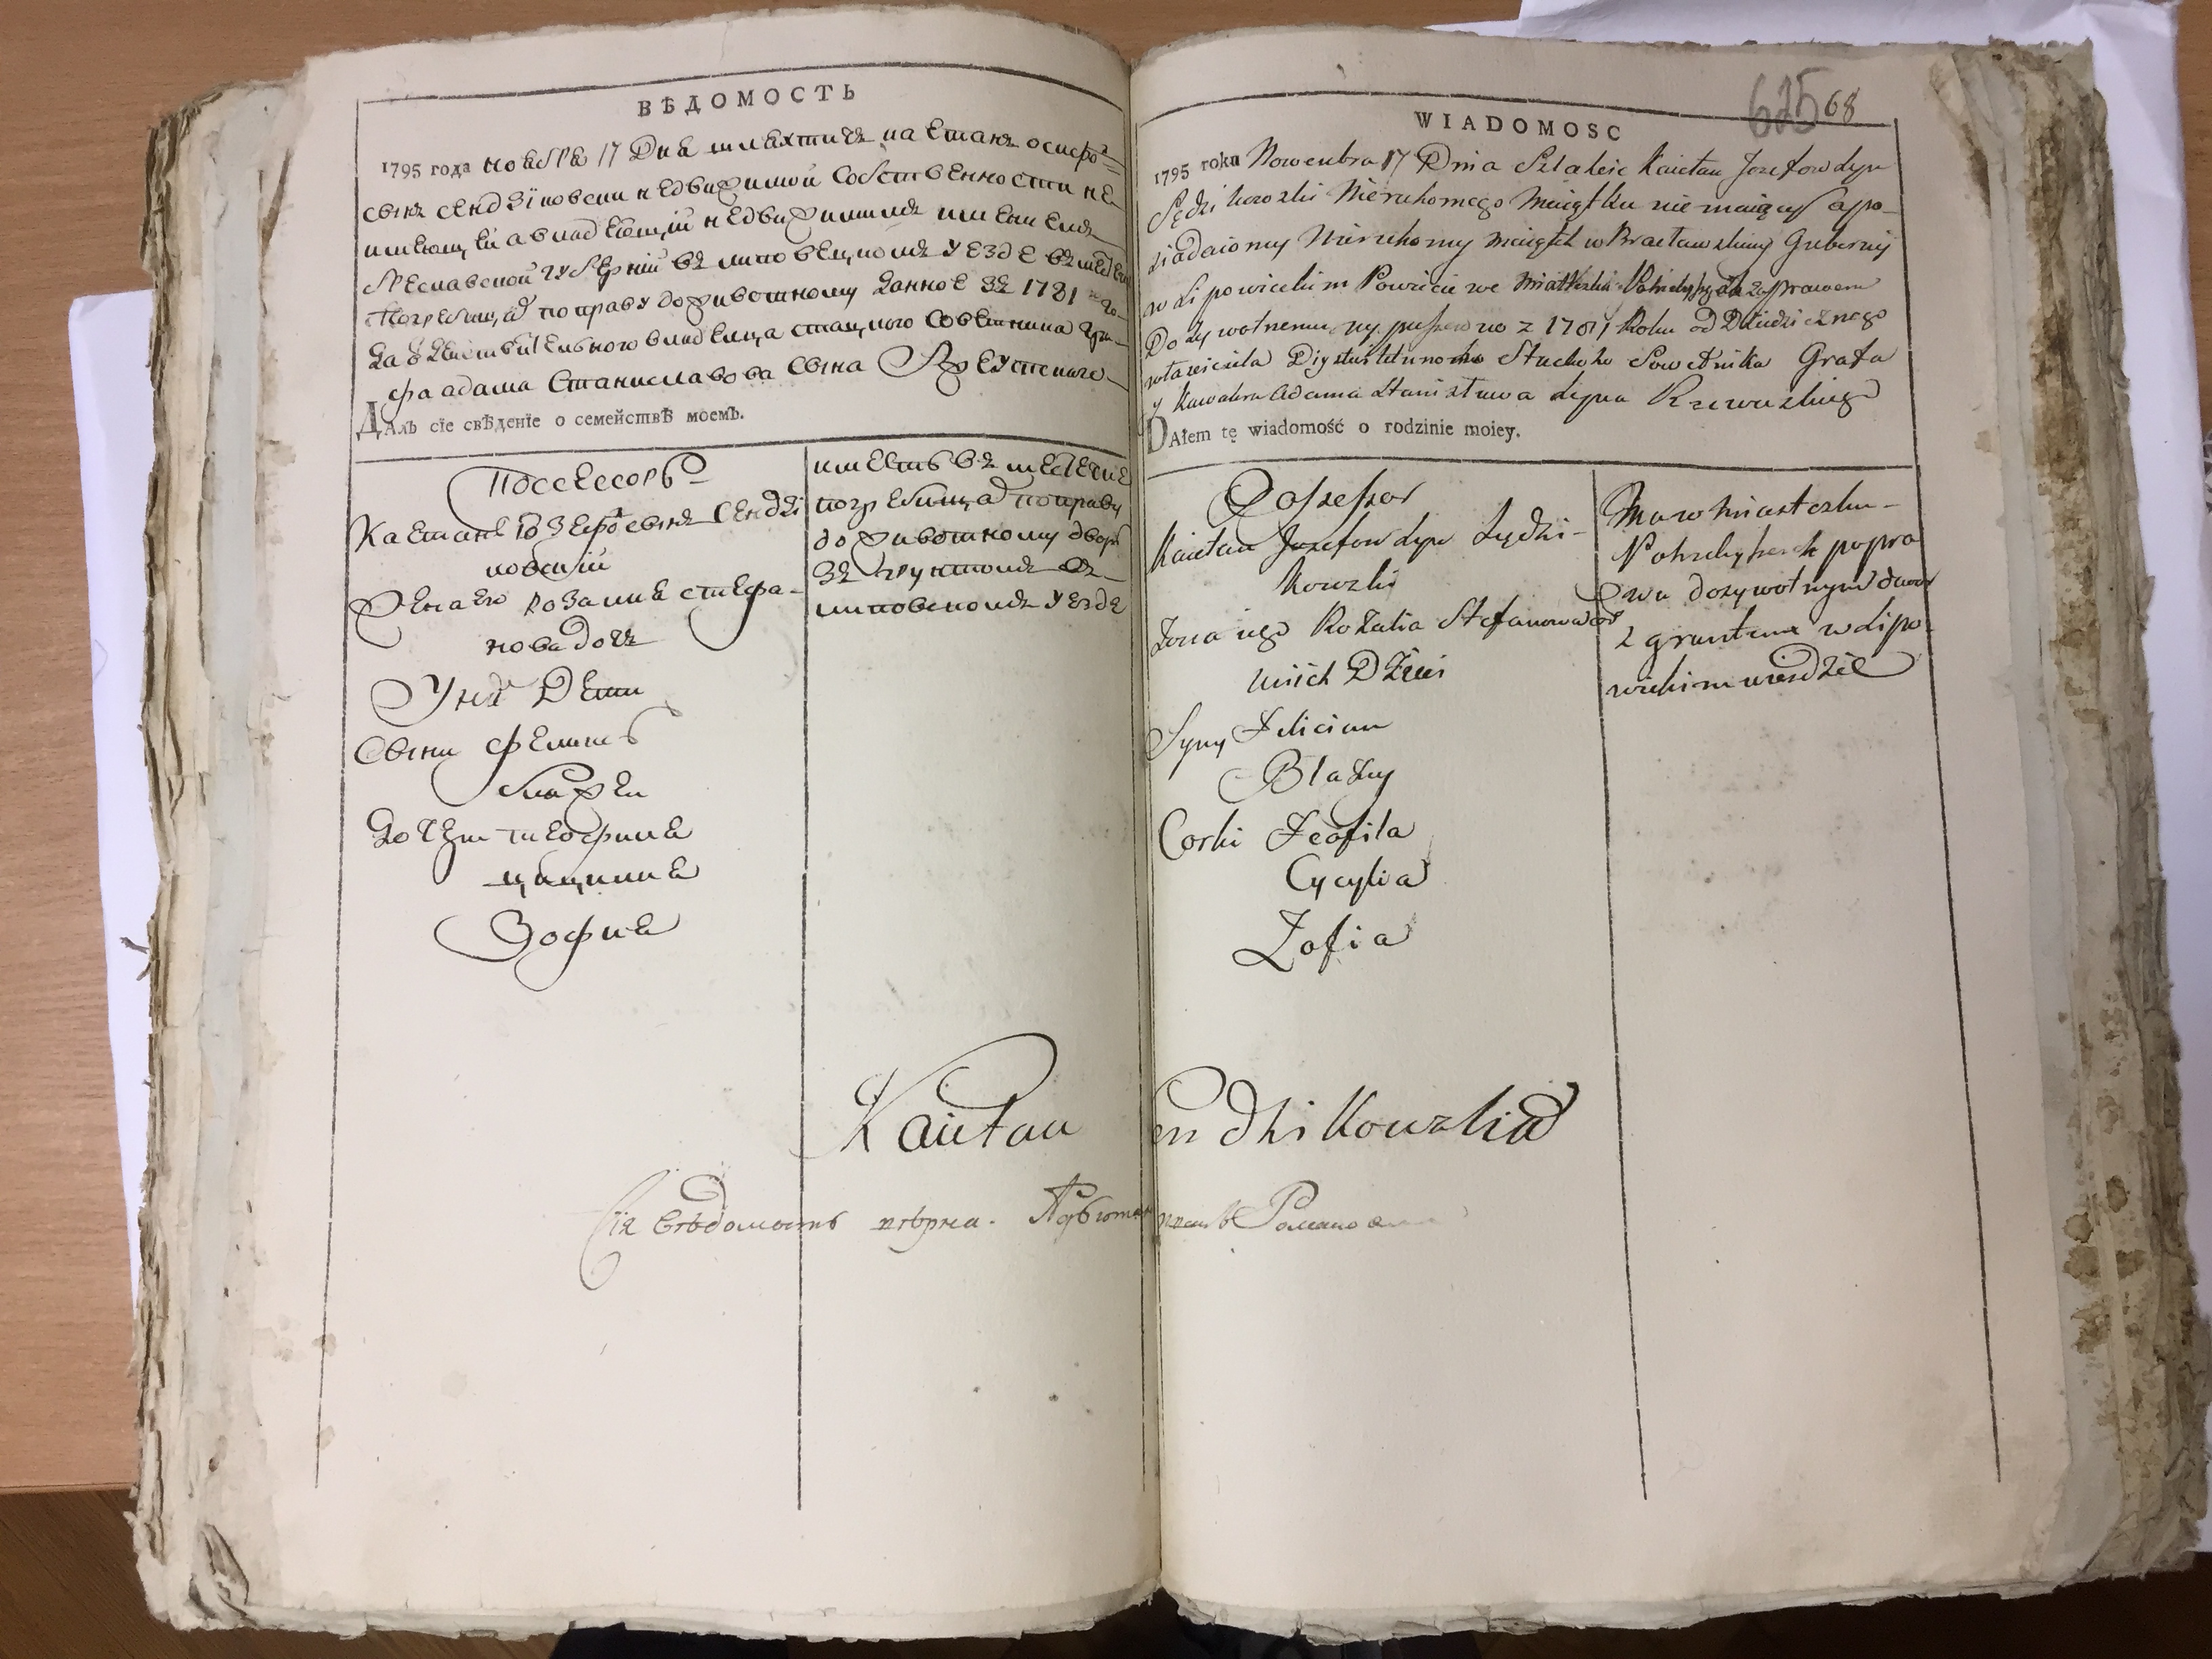 ВѢДОМОСТЬ
1795 года ноября 17 Дня шляхтичъ каетанъ осифо
сынъ сендзіковски недвижимой собственности не
имеющей а владеющій недвижимимъ имениемъ
Бреславской губерніи въ липовецкомъ уезде въ
Погребищах по праву доживотному данное въ 1781 го
да действительного владельца статцкого Советника гра
фа адама Станиславова сына Ржеускаго
Далъ сїе свѣденїе о семействѣ моемъ.
Поссесоръ
Каетанъ Юзефо сынъ Сендзі
ковскій
Жена его Розалия стефа-
нова дочь
У них Дети
Сыни фелиць
блажей
Дочери теофиля
цицилия
Зофия
имеетъ въ местечке
погребищах по праву
доживотному дворъ
въ липовскомъ уезде
WIADOMOSC
625 68
1795 roku Nowembra 17 Dnia Szlahcic Kaietan Jozefow syn
Sędzikowzki Nieruhomego Maiątku nie maiący a po-
siadaiony Nieruhomy maiątek w Bracławskiey Guberniy
w Lipowieckim Powiecie we Miastezku Pohrebyszczah za prawem
Dożywotnemu wypuszczono z 1781 Roku od Dziedzicznego
własciciela Dysztwitelnocho Stackoho Sowetnika Grafa
y Kawalera Adama Stanisława syna Rzewuzkiego
DAłem tę wiadomość o rodzinie moiey.
Possessor
Kaietan Jozefow syn Sędzi-
kowzki
Zona iego Rozalia Stefanowa
u nich Dzieci
Syny Felician
Blazey
Corki Teofila
Cycylia
Zofia
Ma w Miasteczku
Pohrebyszczah po pra
wu dozywotnym dwor
z gruntem w Lipo
wiekim uiezdzie
Kaietan Sendzikowzki
Сія вѣдомость вѣрна.